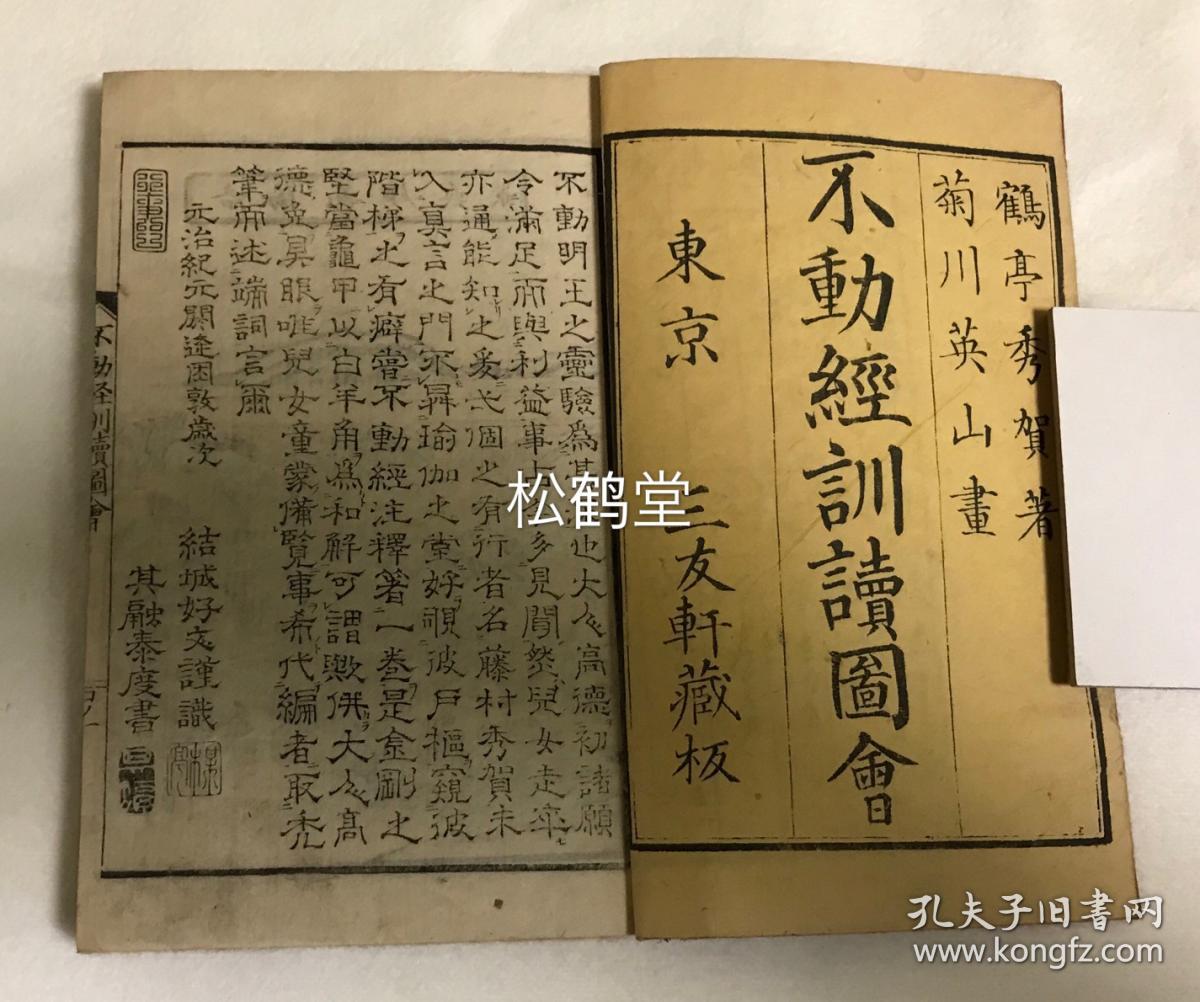 鶴亭秀賀著
菊川英山畫
不動經訓讀圖會
東京 三友軒藏板
不動明王之靈驗爲其
也大
高德初諸願
令滿足而與利益事
多見聞然兒女走卒
亦通能知之爰
個之有行者名藤村秀賀未
入真言之門不昇瑜伽之堂好覗彼戶樞窺彼
階梯之有癖嘗不動經注釋著一卷是金剛之
堅當龜甲以白羊角爲和解可謂歟併大
高
德
具眼唯兒女童蒙備覽事希代編者取禿
筆而述端詞言爾
元治紀元閼逢困敦歲次
結城好文謹識
其融泰度書
不動経訓讀圖會
松鹤堂
孔夫子旧书网
www.kongfz.com